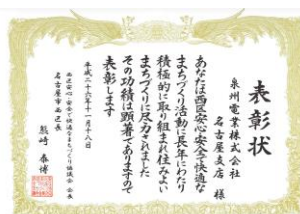 表彰状
泉州電業株式会社
名古屋支店 様
あなたは西区安心安全で快適な
まちづくり活動に長年にわたり
積極的に取り組まれ住みよい
まちづくりに尽力されました
その功績は顕著でありますので
表彰します
平成二十六年十一月十八日
西区安心・安全で快適なまちづくり協議会 会長
名古屋市西区長
熊﨑 春博